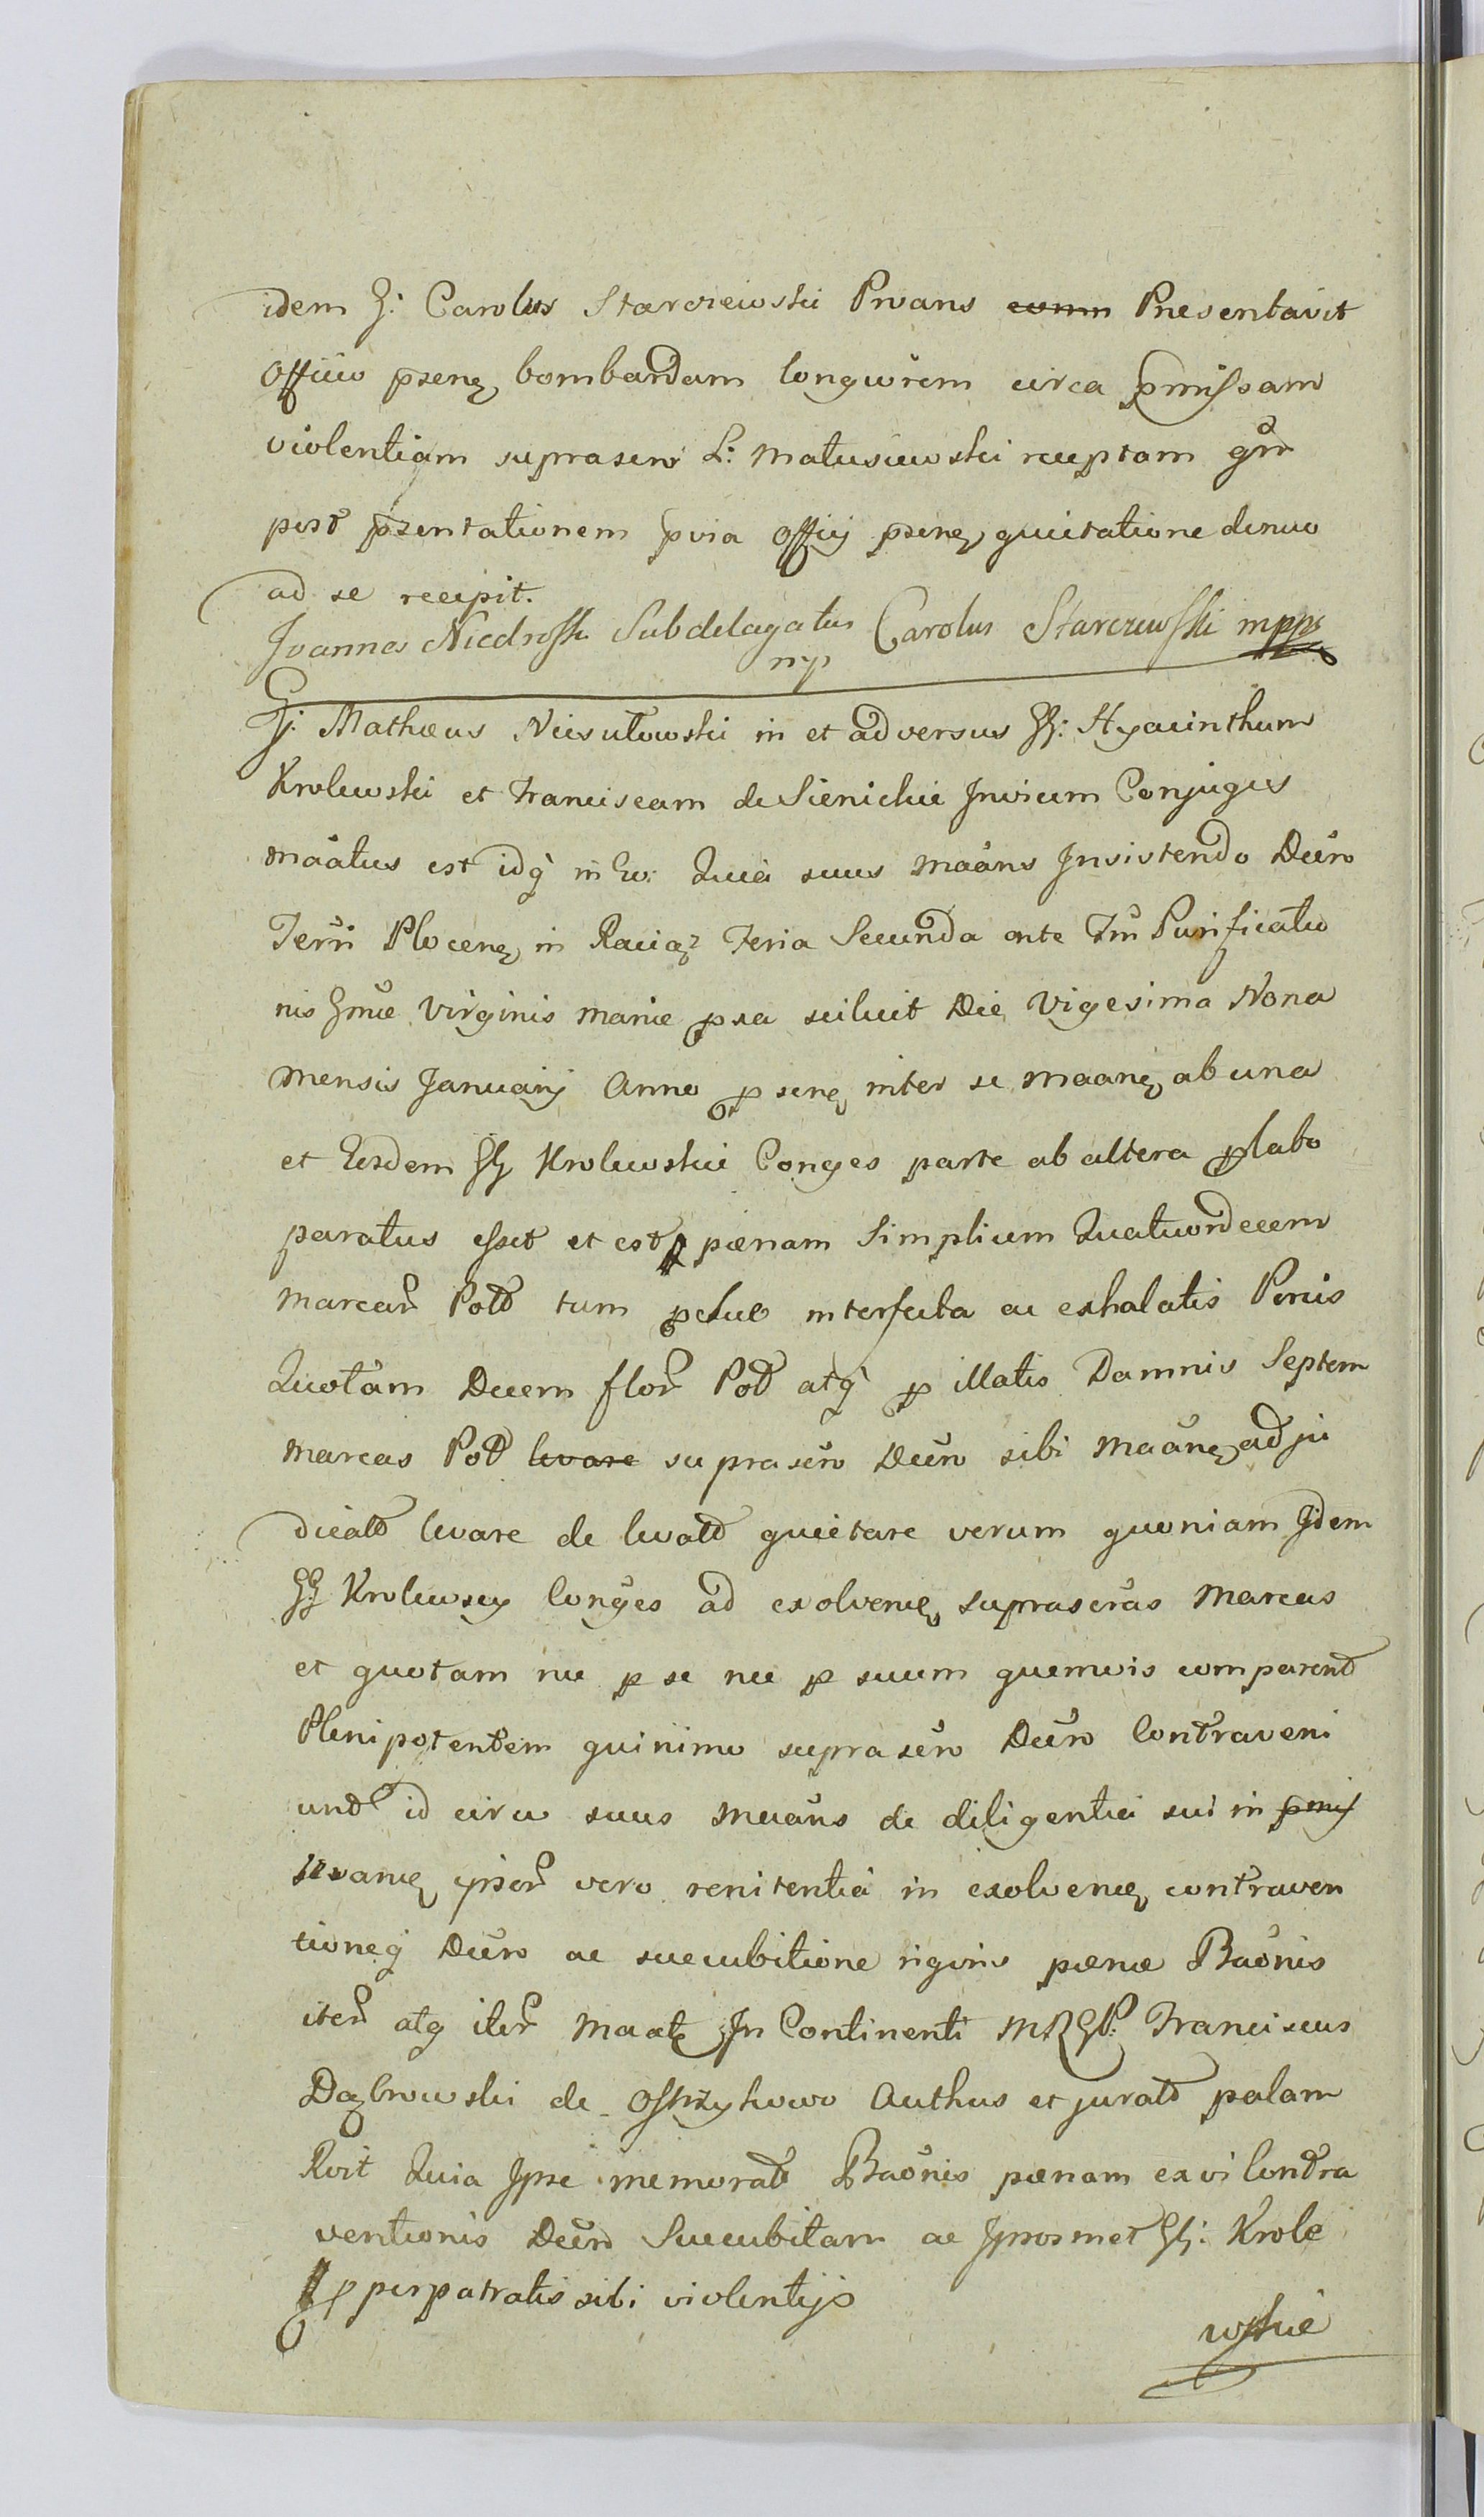 idem G: Carolus Starczewski Proans eomn Presentavit
Officio pseng bombardam longiorem circa pmissam
violentiam suprascr L: Matusiewski receptam
post psentationem pvia Officij pseng quietatione denuo
ad se recepit.
Joannes Niedrosski Subdelagatus Carolus Starczewsski mpps
mp
G: Mathæus Niesułowski in et adversus GG: Hyacinthum
Krolewski et Franciscam de Sienickie Invicem Conjuges
maatus est idq in Eo: Quia suus maans Insistendo Decro
Terri Plocens in Raciąz Feria Secunda ante Fm Purificatio
nis Gmæ Virginis Mariæ pxa scilicet Die Vigesima Nona
Mensis Januarij Anno pseng inter se maang ab una
et Eosdem GG Krolewskie Conges parte ab altera plato
paratus esset et est p pœnam Simplicem Quatuordecem
marcar Pold tum interfecta ac exhalatis Porcis
Quotam Decem flor Pold atq p illatis Damnis Septem
marcas Pold levare suprascro Decro sibi maang adju
dicatd levare de levatd quietare verum quoniam Idem
GG Krolewscy Conges ad exolveng suprascras marcas
et quotam nec p se nec p suum quemvis comparend
Plenipotentem quinimo suprascro Decro Contraveni
und id circo suus maans de diligentia sui in pmis
levang ipsor vero renitentia in exolveng contraven
tioneq Decro ac succubitione rigoris pœnæ Baonis
iter atq iter maats In Continenti MRGP: Franciscus
Dąbrowski de Osstrzykowo Authus et juratd palam
Rvit Quia Ipse memoratd Baonis pœnam ex vi Contra
ventionis Decro Succubitam ac Ipsosmet GG: Krole
p perpatratis sibi violentijs
wskie